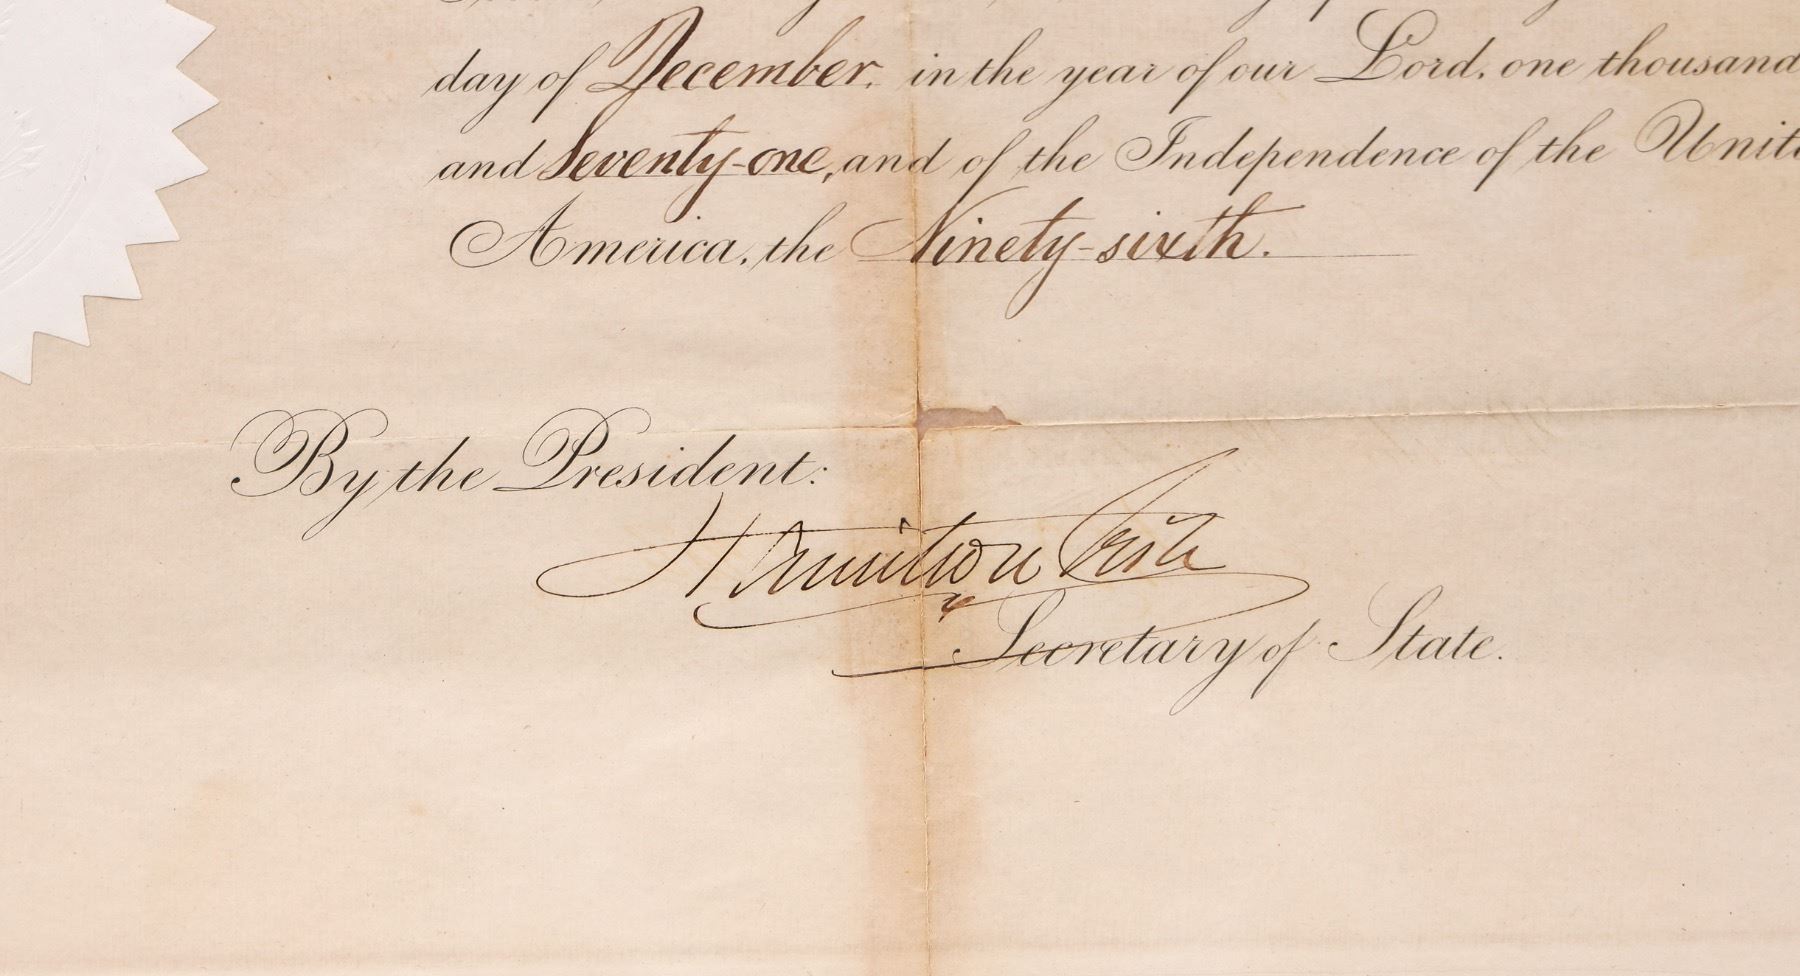 day of December, in the year of our Lord, one thousand
and Seventy-one, and of the Independence of the Unite
America, the Ninety-sixth.
By the President:
Hamilton Fish
Secretary of State.